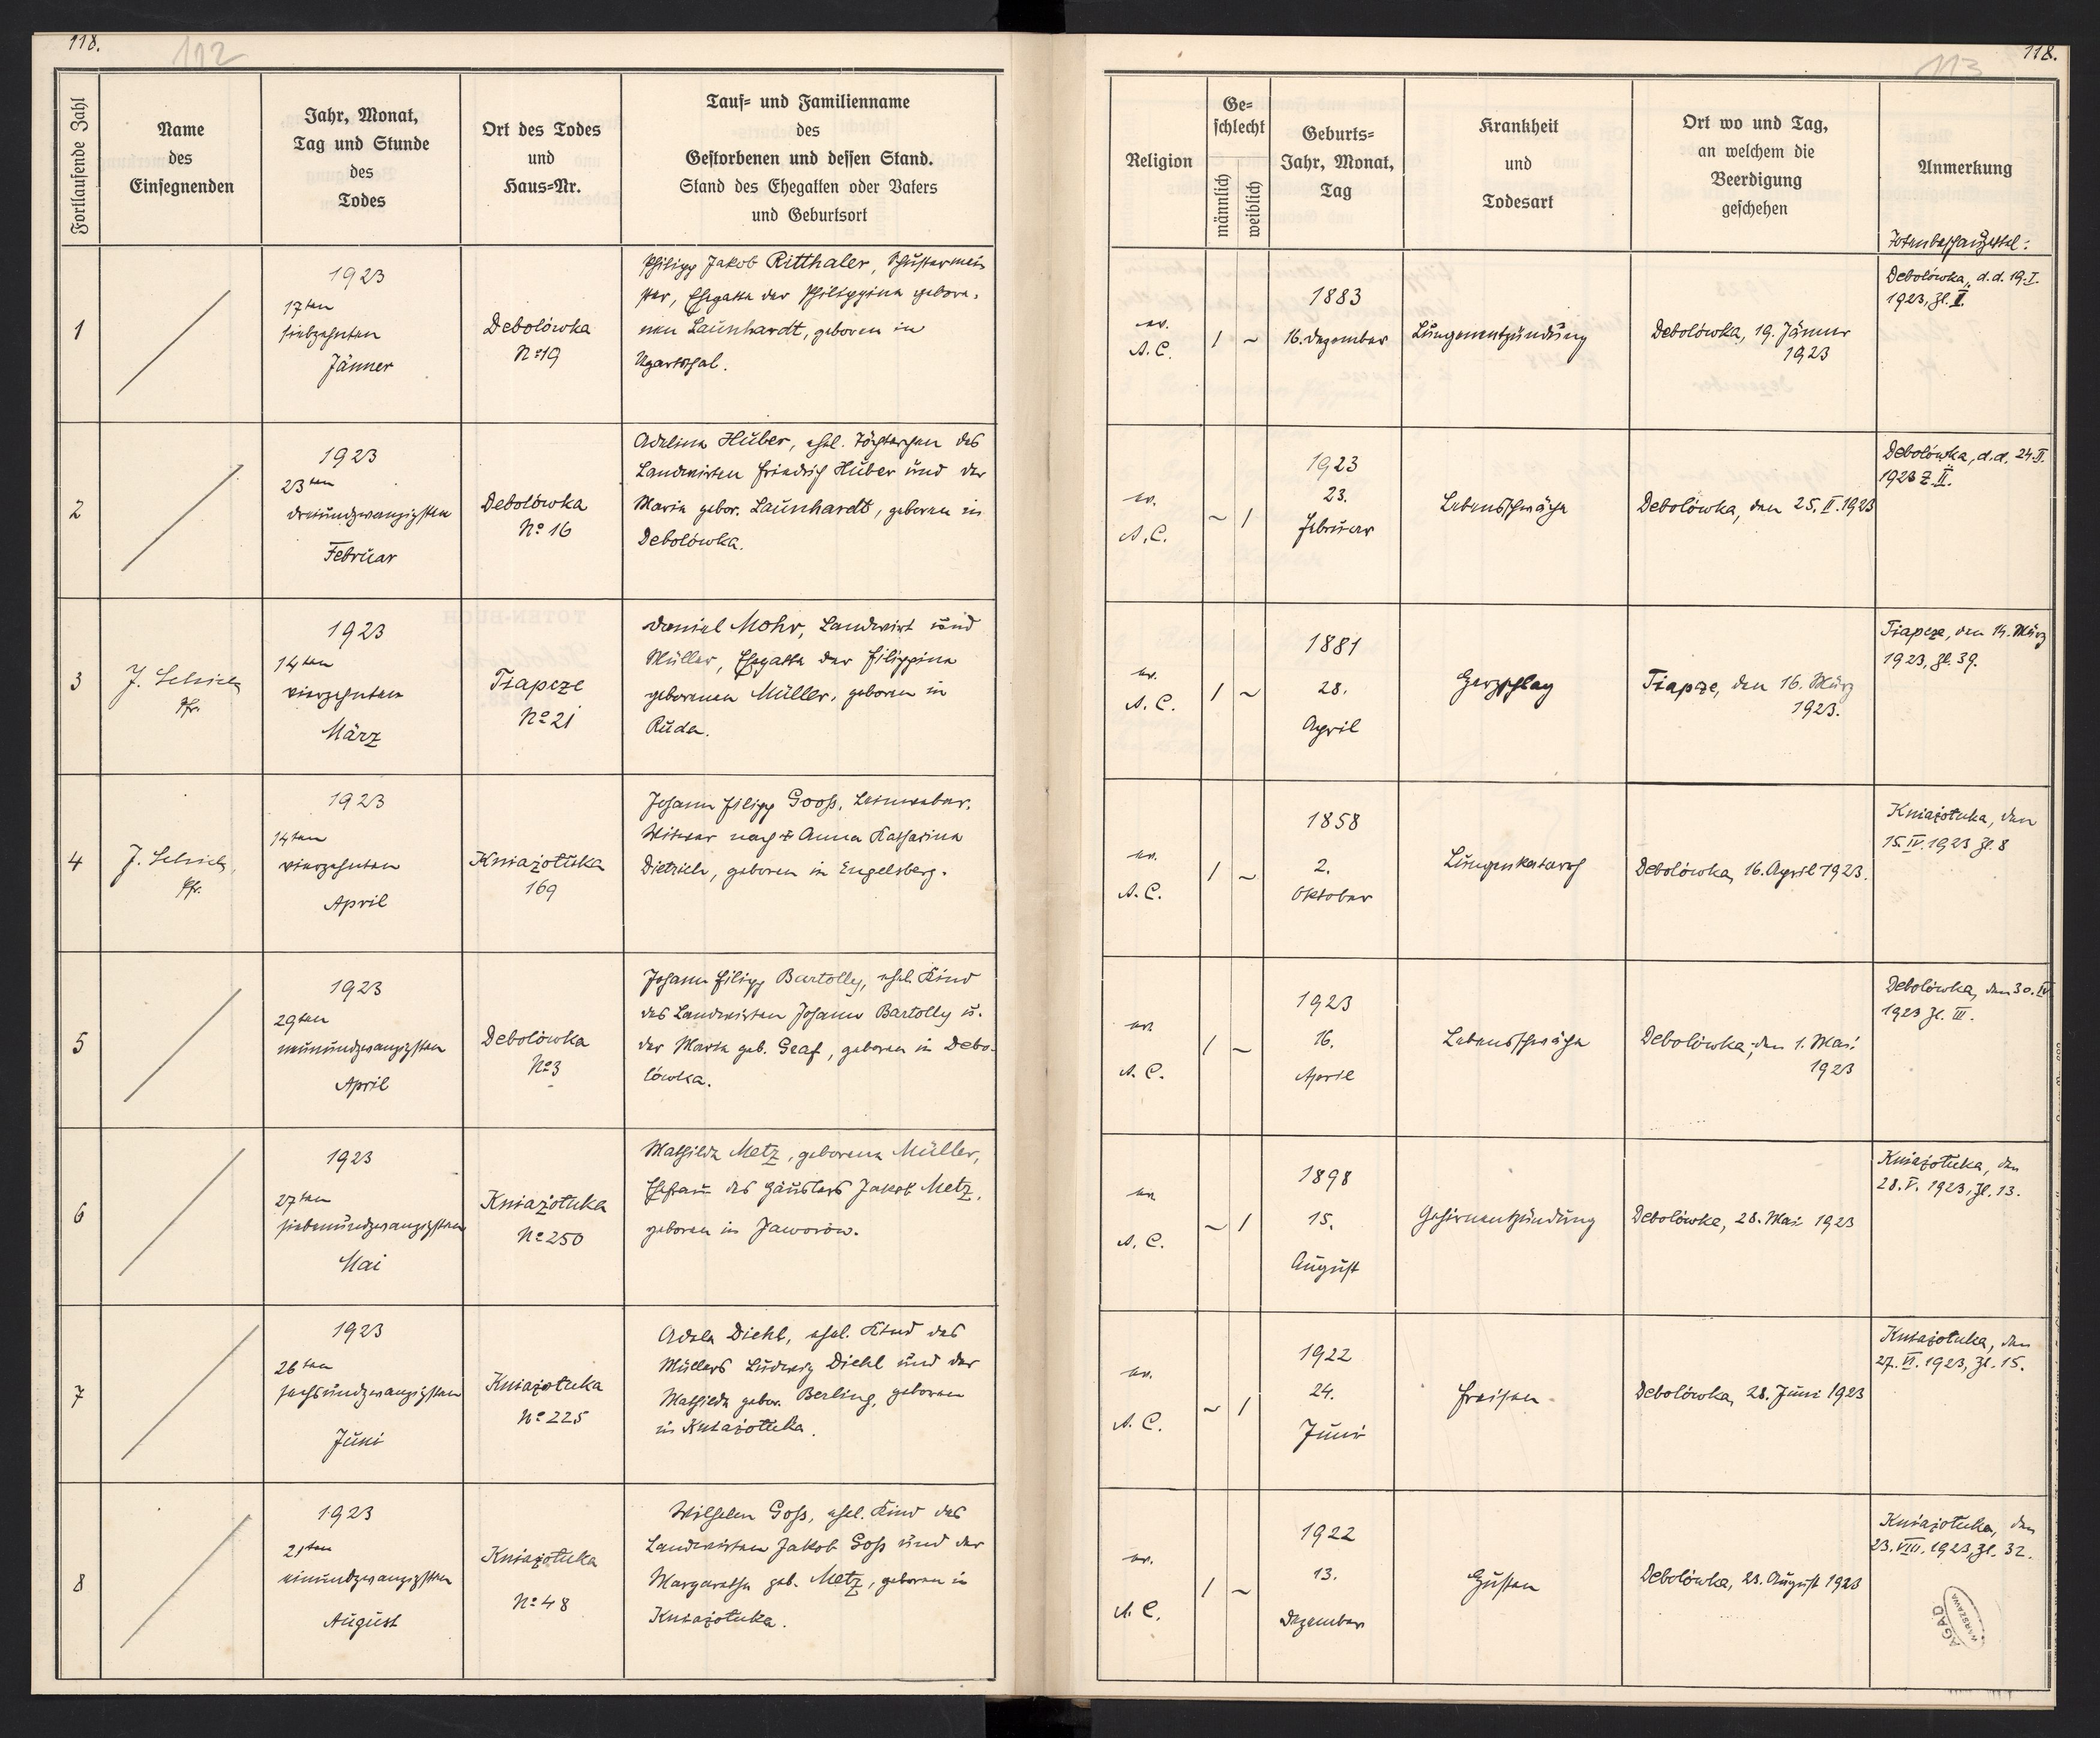 118.
112
Fortlaufende Zahl
Name
des
Einsegnenden
Jahr, Monat,
Tag und Stunde
des
Todes
Ort des Todes
und
Haus=Nr.
Tauf= und Familienname
des
Gestorbenen und dessen Stand.
Stand des Ehegatten oder Vaters
und Geburtsort
1
1923
17ten
siebzehnten
Jänner
Debolówka
No 19
Philipp Jakob Ritthaler, Schustermei
ster, Ehegatte der Philippina gebore-
nen Launhardt, geboren in
Ugartsthal.
2
1923
23ten
dreiundzwanzigsten
Februar
Debolówka
No 16
Adelina Huber, ehel. Töchterchen des
Landwirten Friedrich Huber und der
Maria gebor. Launhardt, geboren in
Debolówka.
3
J. Schick
Pfr.
1923
14ten
vierzehnten
März
Tiapcze
No 21
Daniel Mohr, Landwirt und
Müller, Ehegatte der Filippina
geborenen Müller, geboren in
Ruda.
4
J. Schick,
Pfr.
1923
14ten
vierzehnten
April
Kniażołuka
169
Johann Filipp Gooß, Leinweber,
Witwer nach + Anna Katharina
Dietrich, geboren in Engelsberg.
5
1923
29ten
neunundzwanzigsten
April
Debolówka
No 3
Johann Filipp Bartolly, ehel. Kind
des Landwirten Johann Bartolly u.
der Maria geb. Graf, geboren in Debo-
lówka.
6
1923
27ten
siebenundzwanzigsten
Mai
Kniażołuka
No 250
Mathilde Metz, geborene Müller,
Ehefrau des Häuslers Jakob Metz,
geboren in Jaworów.
7
1923
26ten
sechsundzwanzigsten
Juni
Kniażołuka
No 225
Adela Diehl, ehel. Kind des
Müllers Ludwig Diehl und der
Mathilde gebor. Berling, geboren
in Kniażołuka.
8
1923
21ten
einundzwanzigsten
August
Kniażołuka
No 48
Wilhelm Goß, ehel. Kind des
Landwirten Jakob Goß und der
Margarethe geb. Metz, geboren in
Kniażołuka.
118.
113
Religion
Ge=
schlecht
männlich
weiblich
Geburts=
Jahr, Monat,
Tag
Krankheit
und
Todesart
Ort wo und Tag,
an welchem die
Beerdigung
geschehen
Anmerkung
Totenbeschauzettel:
ev.
A. C.
1 ~
1883
16. Dezember
Lungenentzündung
Debolówka, 19. Jänner
1923
Debolówka, d.d. 19. I.
1923, Zl. I.
ev.
A. C.
~ 1
1923
23.
Februar
Lebensschwäche
Debolówka, den 25. II. 1923
Debolówka, d.d. 24. II.
1923 Z. II.
ev.
A. C.
1 ~
1881
28.
April
Herzschlag
Tiapcze, den 16. März
1923.
Tiapcze, den 14. März
1923, Zl. 39.
ev.
A. C.
1 ~
1858
2.
Oktober
Lungenkatarrh
Debolówka, 16. April 1923.
Kniażołuka, den
15. IV. 1923 Zl. 8
ev.
A. C.
1 ~
1923
16.
April
Lebensschwäche
Debolówka, den 1. Mai
1923
Debolówka, den 30. IV.
1923 Zl. III.
ev.
A. C.
~ 1
1898
15.
August
Gehirnentzündung
Debolówka, 28. Mai 1923
Kniażołuka, den
28. V. 1923, Zl. 13.
ev.
A. C.
~ 1
1922
24.
Juni
Fraisen
Debolówka, 28. Juni 1923
Kniażołuka, den
27. VI. 1923, Zl. 15.
ev.
A. C.
1 ~
1922
13.
Dezember
Husten
Debolówka, 23. August 1923
Kniażołuka, den
23. VIII. 1923, Zl. 32.
AGAD
WARSZAWA